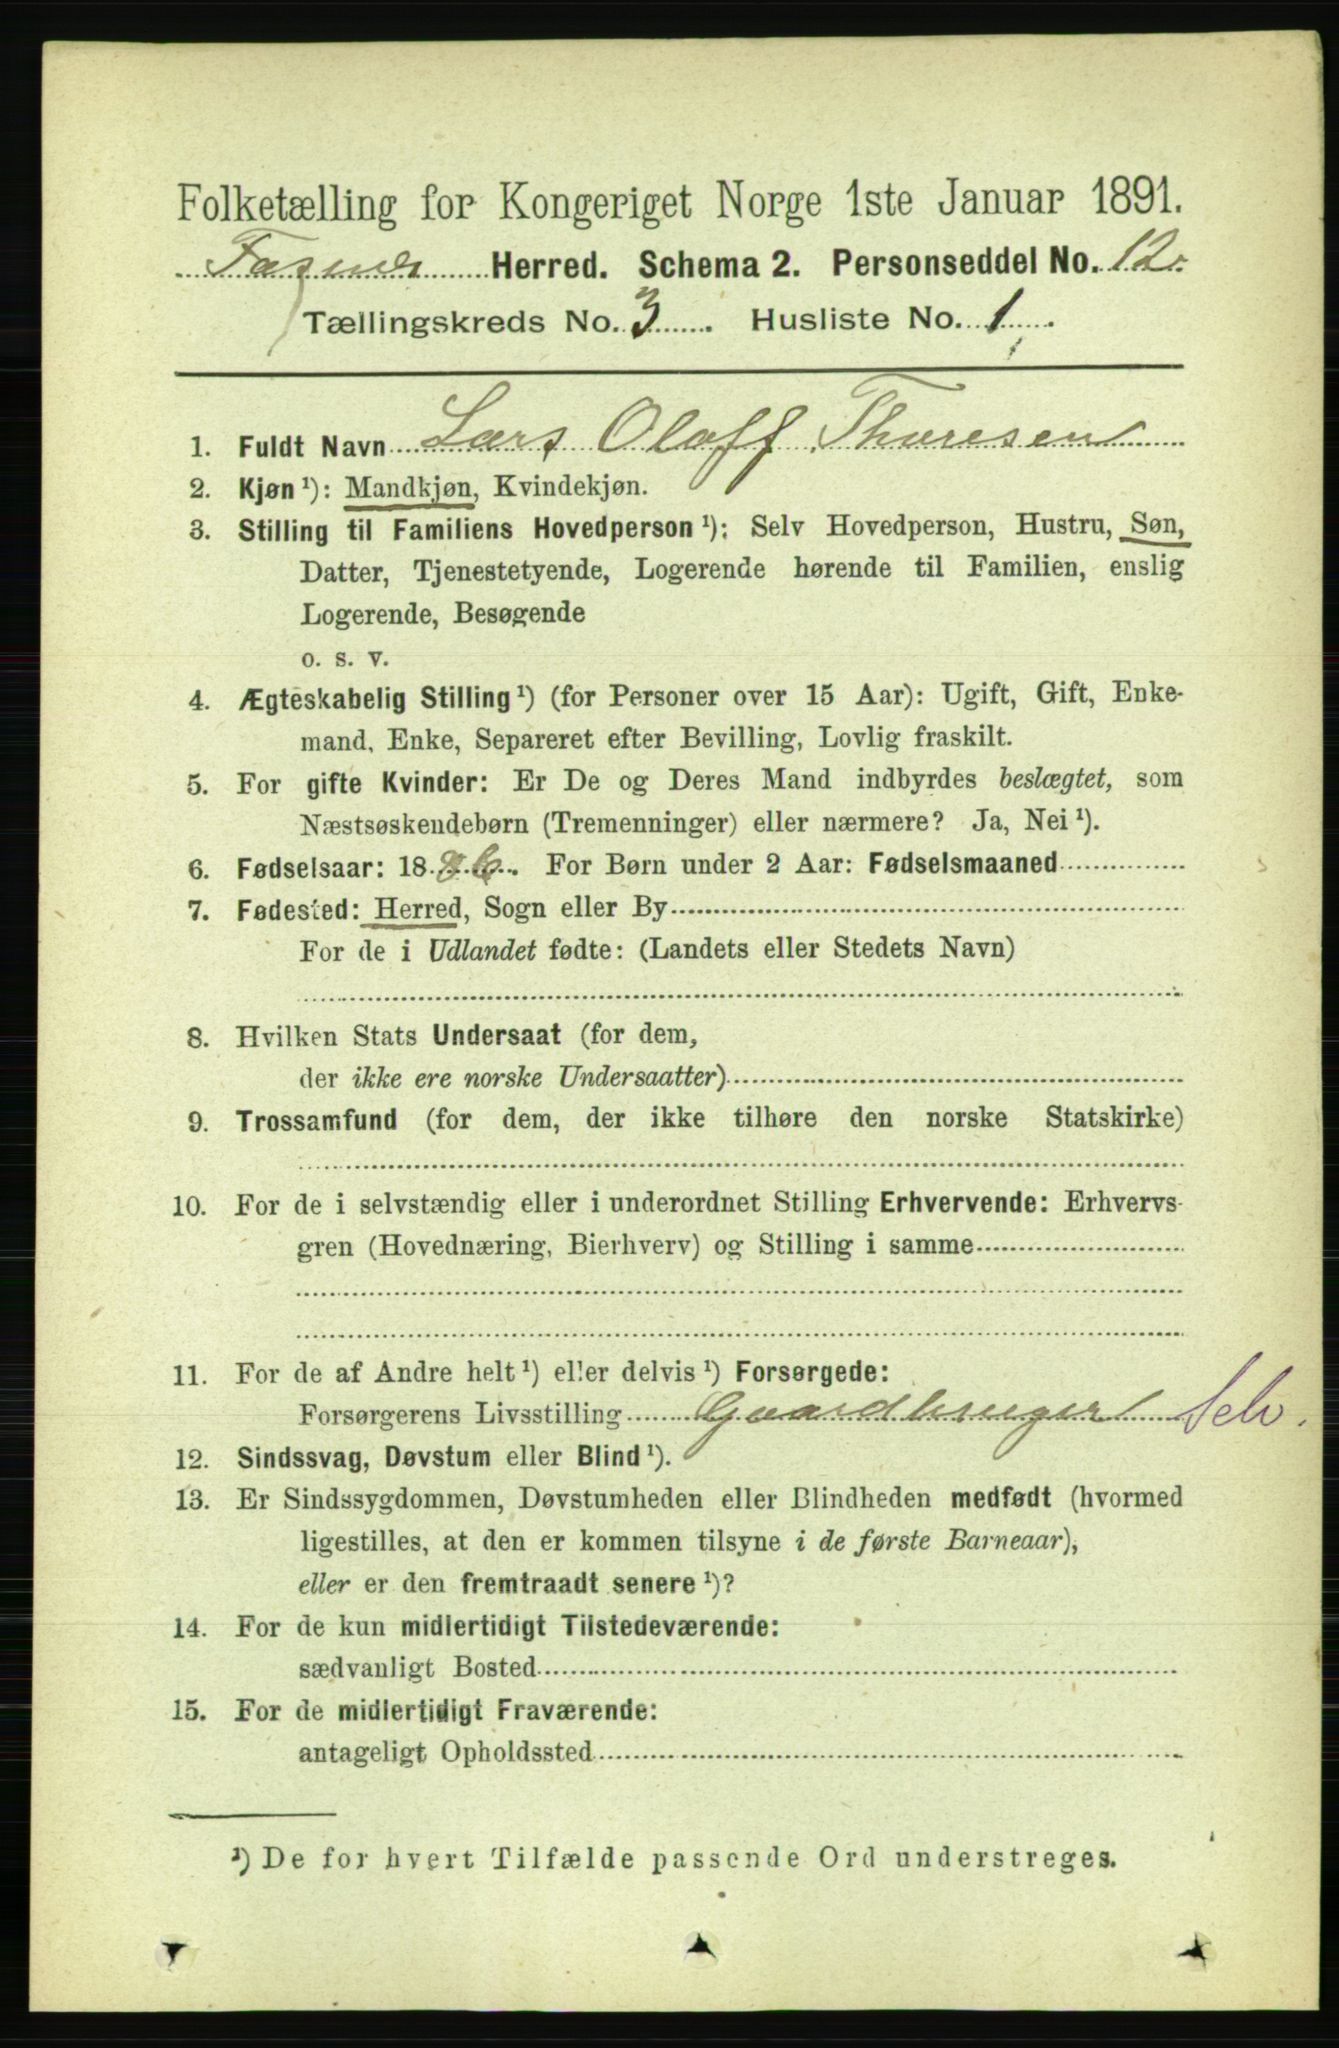 Folketælling for Kongeriget Norge 1ste Januar 1891.
Herred. Schema 2. Personseddel No. 12.
Tællingskreds No. 3. Husliste No. 1.
1. Fuldt Navn Lars Oloff Thoresen
2. Kjøn ¹): Mandkjøn, Kvindekjøn.
3. Stilling til Familiens Hovedperson ¹): Selv Hovedperson, Hustru, Søn,
Datter, Tjenestetyende, Logerende hørende til Familien, enslig
Logerende, Besøgende
o. s. v.
4. Ægteskabelig Stilling ¹) (for Personer over 15 Aar): Ugift, Gift, Enke-
mand, Enke, Separeret efter Bevilling, Lovlig fraskilt.
5. For gifte Kvinder: Er De og Deres Mand indbyrdes beslægtet, som
Næstsøskendebørn (Tremenninger) eller nærmere? Ja, Nei ¹).
6. Fødselsaar: 1886. For Børn under 2 Aar: Fødselsmaaned
7. Fødested: Herred, Sogn eller By
For de i Udlandet fødte: (Landets eller Stedets Navn)
8. Hvilken Stats Undersaat (for dem,
der ikke ere norske Undersaatter)
9. Trossamfund (for dem, der ikke tilhøre den norske Statskirke)
10. For de i selvstændig eller i underordnet Stilling Erhvervende: Erhvervs-
gren (Hovednæring, Bierhverv) og Stilling i samme
11. For de af Andre helt ¹) eller delvis ¹) Forsørgede:
Forsørgerens Livsstilling Gaardbruger Selv.
12. Sindssvag, Døvstum eller Blind ¹).
13. Er Sindssygdommen, Døvstumheden eller Blindheden medfødt (hvormed
ligestilles, at den er kommen tilsyne i de første Barneaar),
eller er den fremtraadt senere ¹)?
14. For de kun midlertidigt Tilstedeværende:
sædvanligt Bosted
15. For de midlertidigt Fraværende:
antageligt Opholdssted
¹) De for hvert Tilfælde passende Ord understreges.